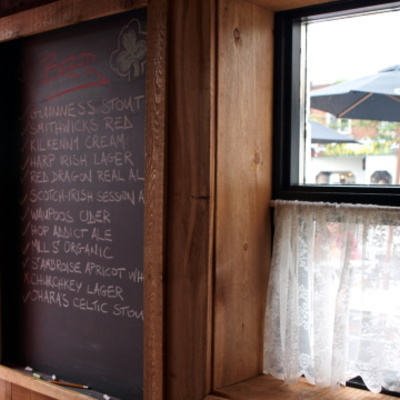 GUINNESS STOUT
SMITHWICKS RED
KILKENNY CREAM
HARP IRISH LAGER
RED DRAGON REAL AL
SCOTCH-IRISH SESSION A
WAUPOOS CIDER
HOP ADDICT ALE
MILL ST ORGANIC
ST AMBROISE APRICOT WH
CHURCHKEY LAGER
OHARA'S CELTIC STOU